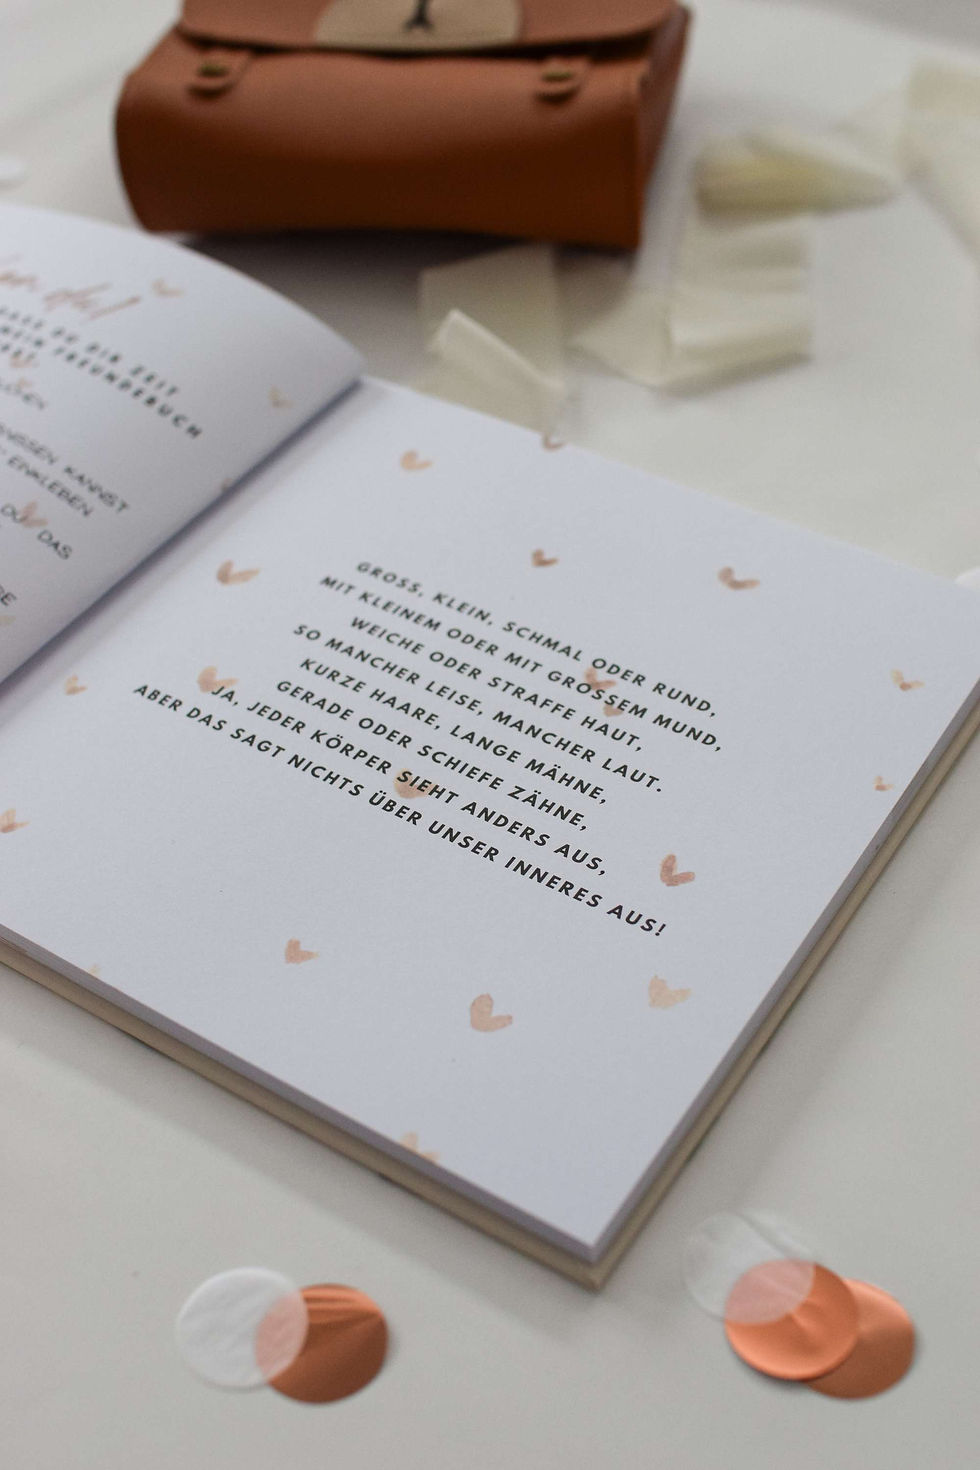 DU DIR ZEIT
MEIN FREUNDEBUCH
KANNST
EINKLEBEN
DU DAS
GROSS, KLEIN, SCHMAL ODER RUND,
MIT KLEINEM ODER MIT GROSSEM MUND,
WEICHE ODER STRAFFE HAUT,
SO MANCHER LEISE, MANCHER LAUT.
KURZE HAARE, LANGE MÄHNE,
GERADE ODER SCHIEFE ZÄHNE,
JA, JEDER KÖRPER SIEHT ANDERS AUS,
ABER DAS SAGT NICHTS ÜBER UNSER INNERES AUS!